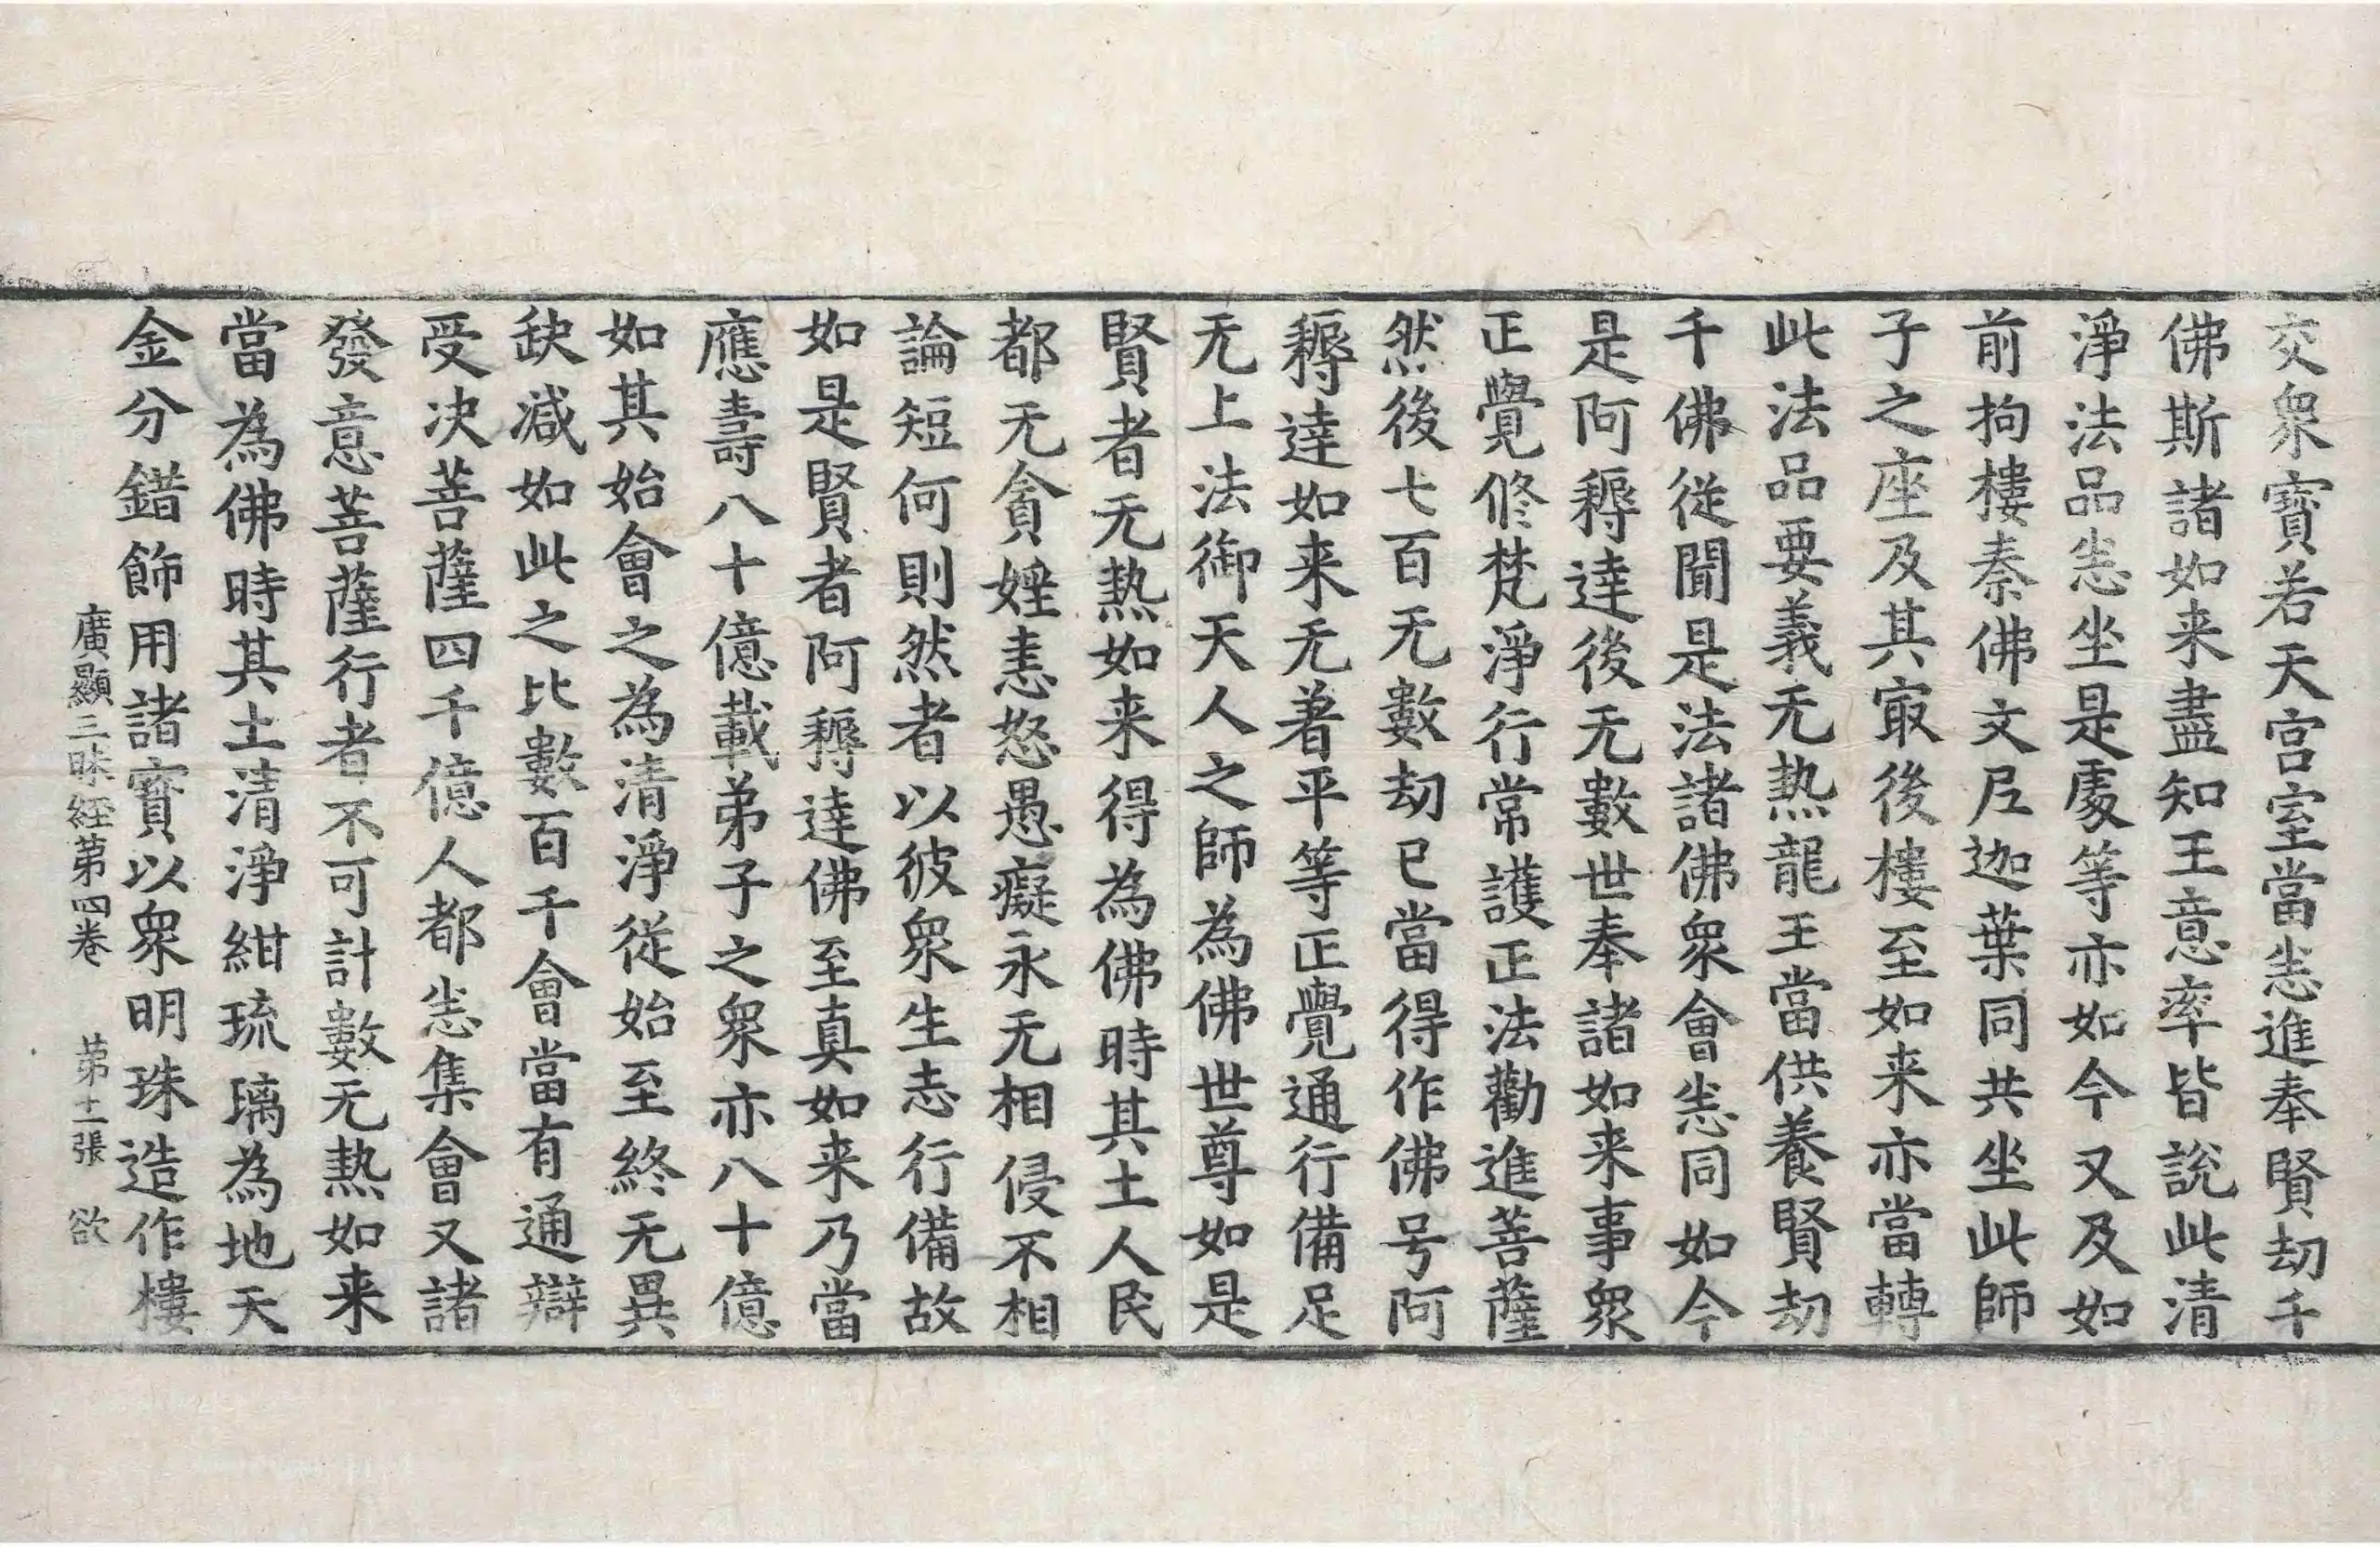 交衆寶若天宫室當悉進奉賢劫千
佛斯諸如来盡知王意率皆說此清
淨法品悉坐是處等亦如今又及如
前拘樓秦佛文尼迦葉同共坐此師
子之座及其㝡後樓至如来亦當轉
此法品要義无热龍王當供養賢劫
千佛從聞是法諸佛衆會悉同如今
是阿耨達後无數世奉諸如来事衆
正覺修梵淨行常護正法勸進菩薩
然後七百无數劫已當得作佛号阿
耨達如来无著平等正覺通行備足
无上法御天人之師為佛世尊如是
賢者无熱如来得為佛時其土人民
都无貪婬恚怒愚癡永无相侵不相
論短何則然者以彼衆生志行備故
如是賢者阿耨達佛至真如来乃當
應壽八十億載弟子之衆亦八十億
如其始會之為清淨從始至終无異
缺減如此之比數百千會當有通辯
受决菩薩四千億人都悉集會又諸
發意菩薩行者不可計數无熱如来
當為佛時其土清淨紺琉璃為地天
金分錯飾用諸寳以衆明珠造作樓
廣顯三昧経第四卷　第十二張　欲